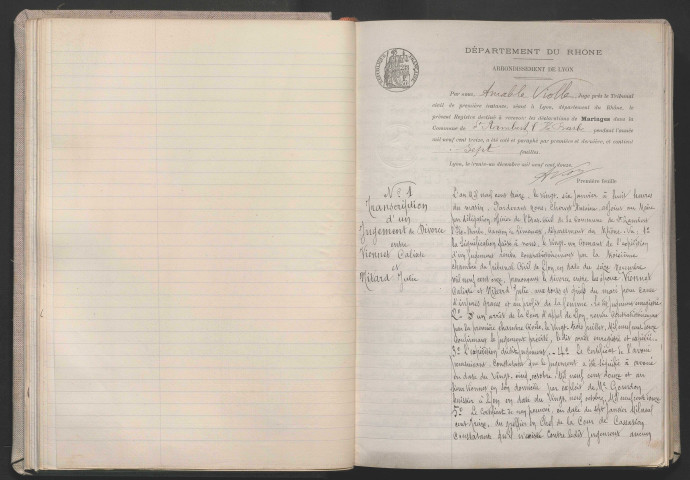 DÉPARTEMENT DU RHÔNE
ARRONDISSEMENT DE LYON
Par nous, Amable Viollet Juge près le Tribunal
civil de première instance, séant à Lyon, département du Rhône, le
présent Registre destiné à contenir les déclarations de Mariages dans la
Commune de St Rambert l'Ile Barbe pendant l'année
mil neuf cent treize, a été coté et paraphé par première et dernière, et contient
Sept feuillets.
Lyon, le trente-un décembre mil neuf cent douze.
Première feuille.
N° 1
Transcription
d'un
Jugement de Divorce
entre
Vionnet Caliste
et
Milard Julie
L'an mil neuf cent treize, le vingt six janvier à huit heures
du matin. Par devant nous adjoint au Maire
par délégation, officier de l'Etat civil de la Commune de St Rambert
l'Ile Barbe, canton de Limonest, département du Rhône. Vu: 1°
La signification faite à nous, le vingt un courant de l'expédition
d'un jugement rendu contradictoirement par la troisième
chambre du Tribunal Civil de Lyon en date du seize Novembre
mil neuf cent onze, prononçant le divorce entre les époux Vionnet
Caliste et Milard Julie aux torts et griefs du mari pour cause
d'injures graves et au profit de la femme. le dit jugement enregistré
2° D'un arrêt de la Cour d'appel de Lyon, rendu contradictoirement
par la première chambre civile, le vingt trois juillet mil neuf cent douze
Confirmant le jugement précité, le dit arrêt enregistré et expédié.
3° L'expédition dudit jugement. 4° Le Certificat de l'avoué
Constatant que le jugement a été signifié à avoué
en date du vingt cinq octobre mil neuf cent douze et au
Vionnet en son domicile par exploit de Me Gourdon
huissier à Lyon en date du vingt neuf octobre mil neuf cent douze
5° Le Certificat de non pourvoi en date du sept janvier mil neuf
cent treize, du greffier en Chef de la Cour de Cassation
Constatant qu'il n'existe contre ledit jugement aucun